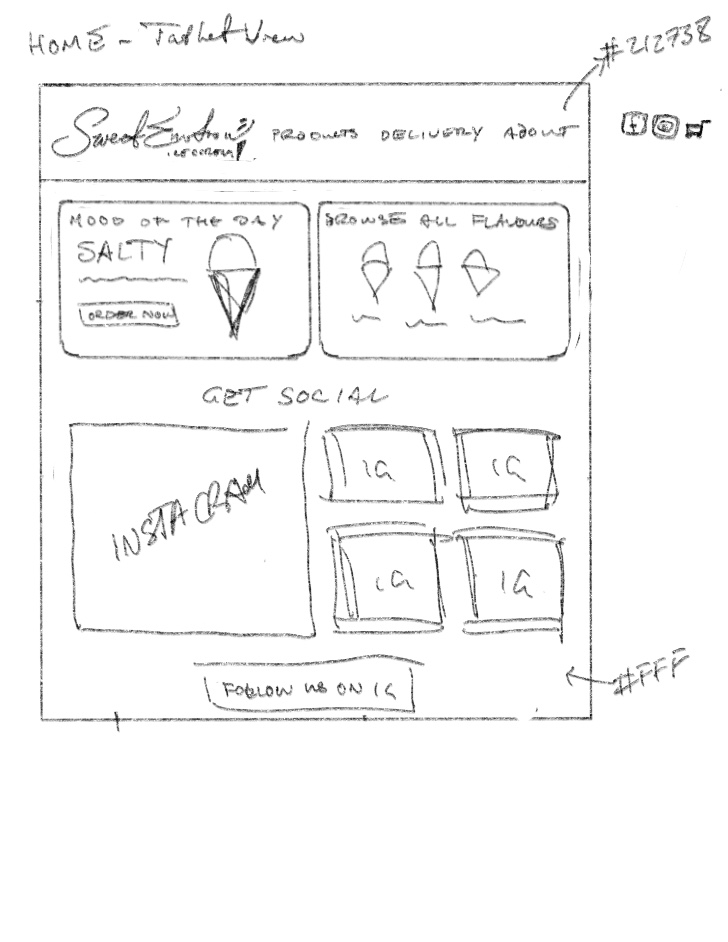 HOME - Tablet View
#212738
Sweet Emotions PRODUCTS DELIVERY ABOUT
ICECREAM
MOOD OF THE DAY
SALTY
ORDER NOW
BROWSE ALL FLAVOURS
GET SOCIAL
INSTAGRAM
IG IG
IG IG
FOLLOW US ON IG
#FFF